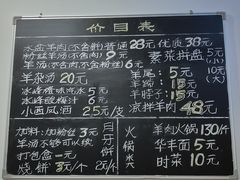 价目表
水盆羊肉(不含饼)普通28元优质38元
粉汤羊肉(不含饼)9元
羊汤(不含粉丝)6元
素菜拼盘 5元(小)
10元(大)
羊杂汤20元
冰峰橙味汽水5元
冰峰酸梅汁6元
小西凤酒2.5元/支
羊尾:5元
羊蹄:15元
羊脖子:15元
凉拌羊肉48元
加料:加粉丝3元
羊汤不够可以续
打包盒一元
烧饼3元/个
火锅类
羊肉火锅130/斤
华丰面5元
时菜10元